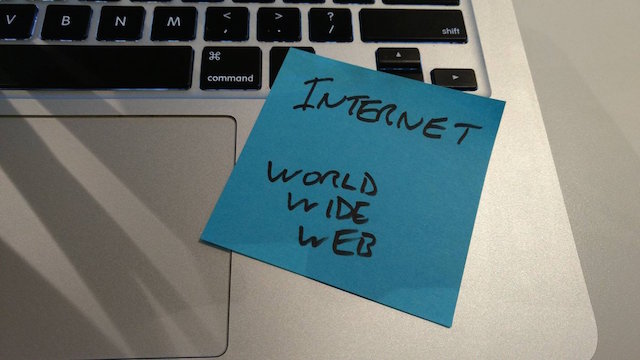 V B N M < , > . ? / shift
⌘ command
INTERNET
WORLD
WIDE
WEB